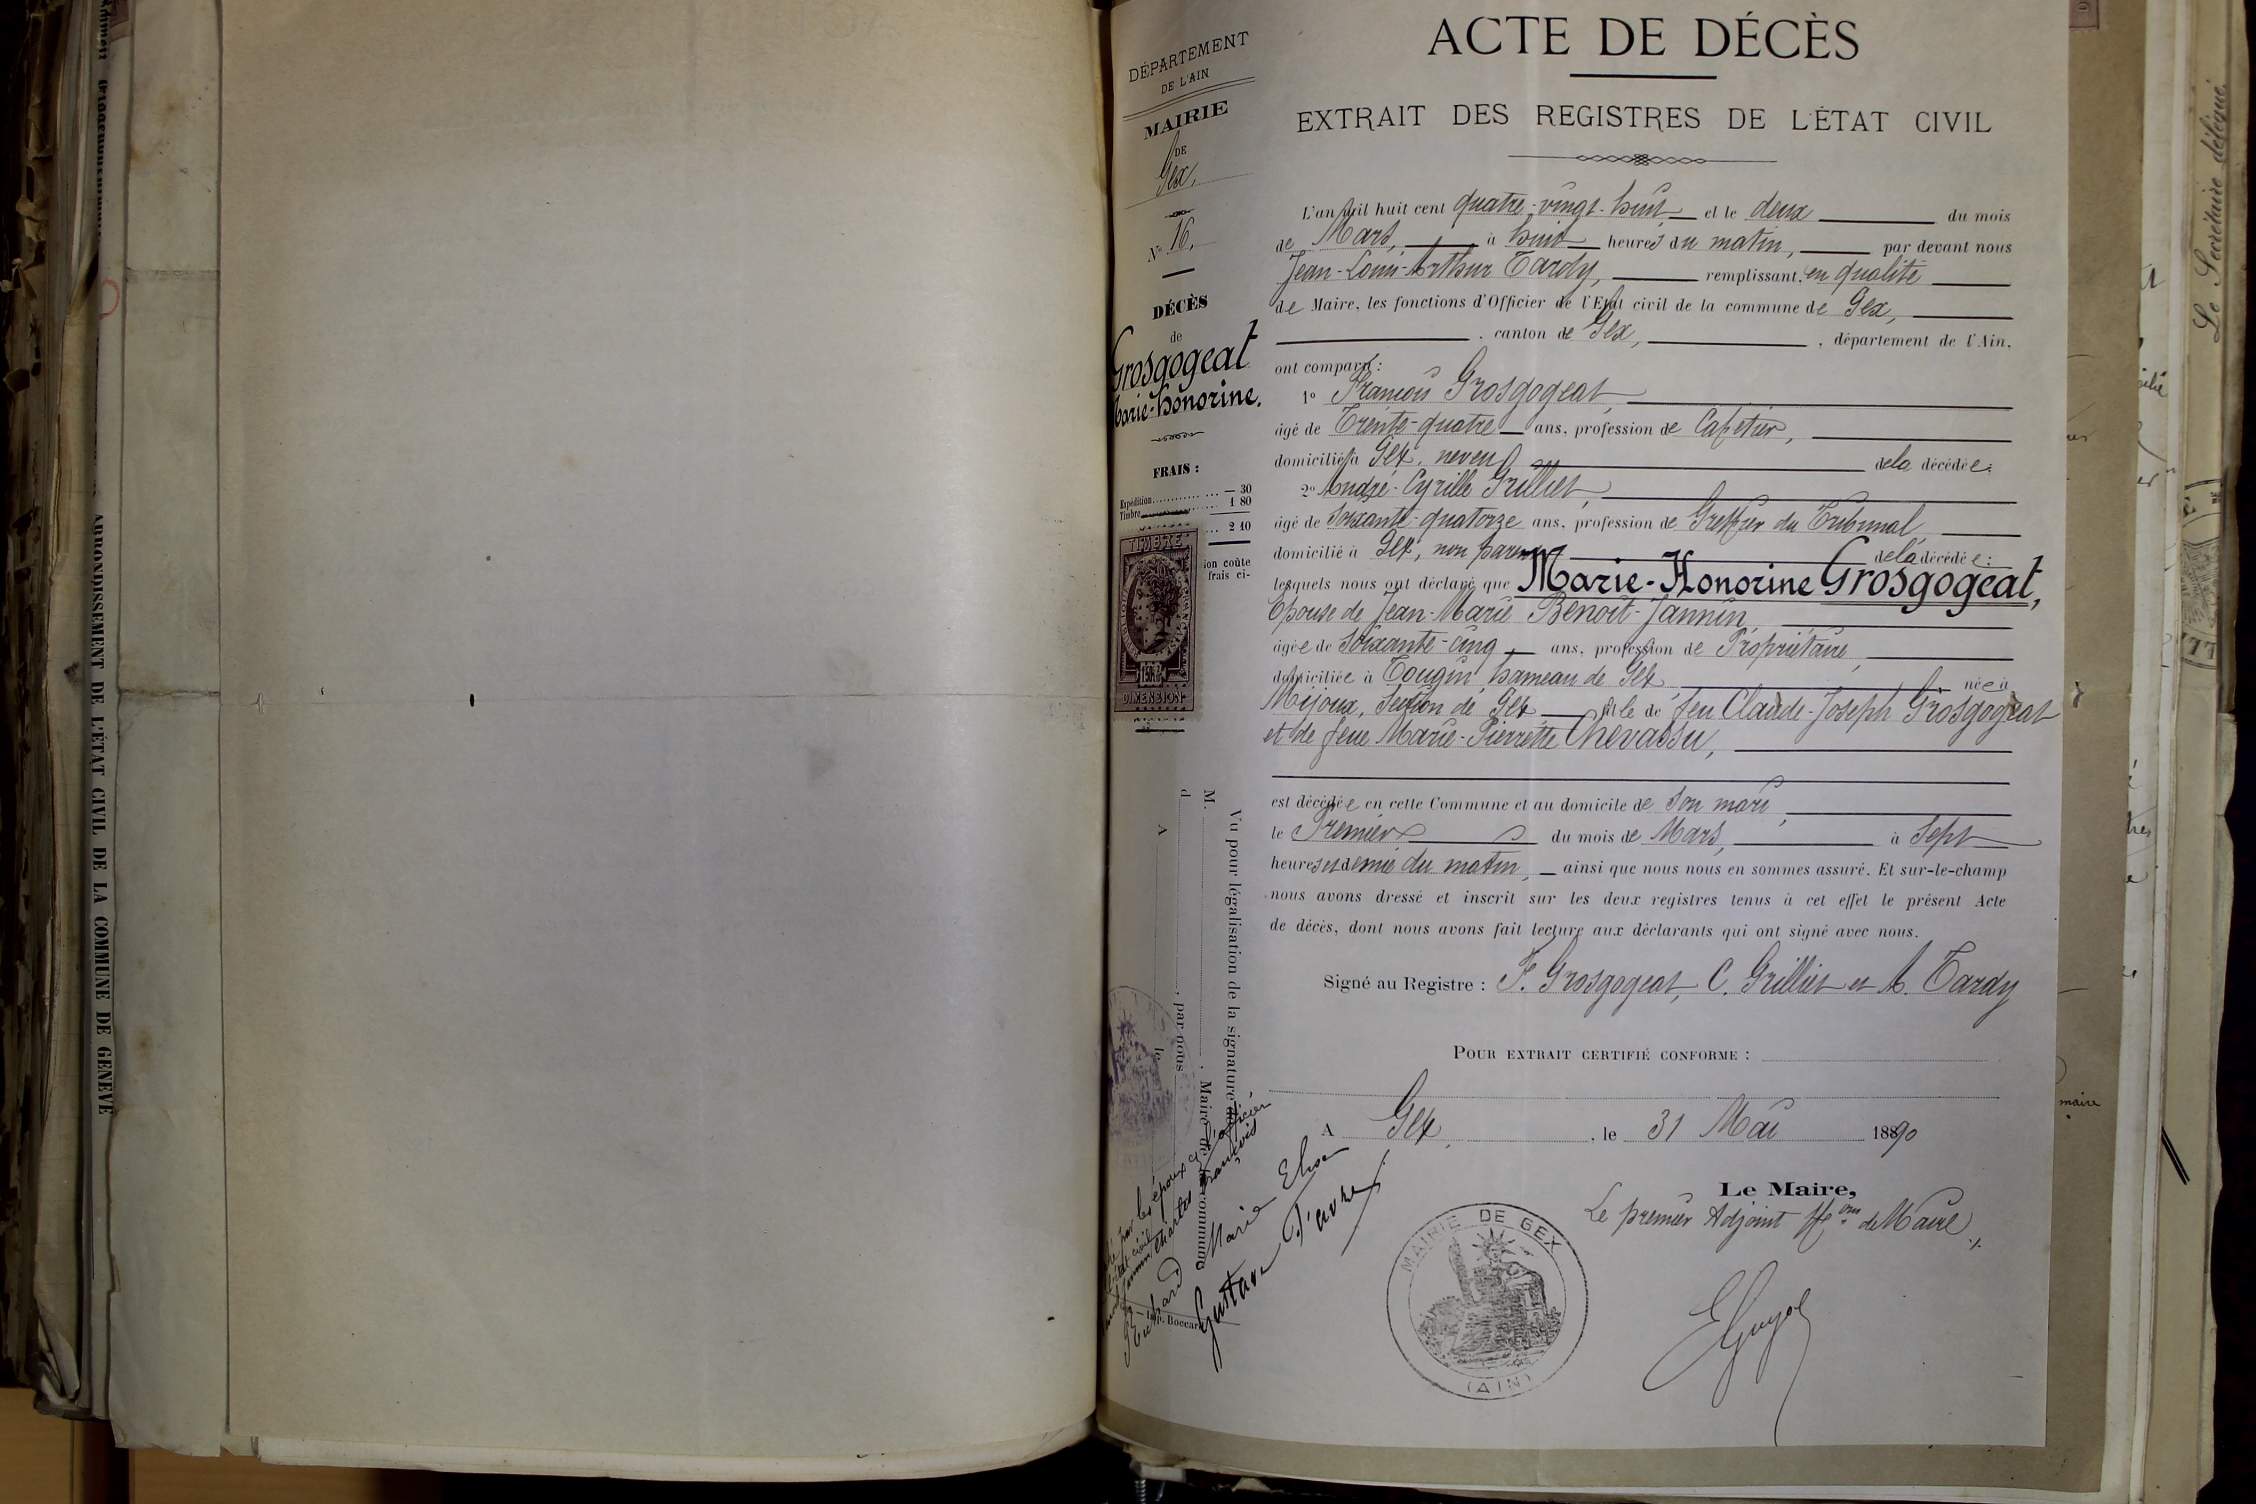 ARRONDISSEMENT DE L'ÉTAT CIVIL DE LA COMMUNE DE GENEVE
DÉPARTEMENT
DE L'AIN
MAIRIE
DE
Gex,
N° 16.
DÉCÈS
de
Grosgogeat
Marie-Honorine.
FRAIS :
Expédition............ — 30
Timbre............ 1 80
... 2 10
ion coûte
frais ci-
TIMBRE
DIMENSION
Vu pour légalisation de la signature
M. , Maire de commune
d , par nous
A le
les époux et l'officier
l'état civil
Charles François
Richard Marie Elisa
Gustave Favre
ACTE DE DÉCÈS
EXTRAIT DES REGISTRES DE L'ÉTAT CIVIL
L'an mil huit cent quatre-vingt-huit et le deux du mois
de Mars, à huit heures du matin, par devant nous
Jean-Louis-Arthur Tardy, remplissant, en qualité
de Maire, les fonctions d'Officier de l'Etat civil de la commune de Gex,
, canton de Gex, , département de l'Ain,
ont comparu :
1° François Grosgogeat,
âgé de Trente-quatre ans, profession de Cafetier,
domicilié à Gex, neveu de la décédée :
2° André-Cyrille Grilliet,
âgé de Soixante-quatorze ans, profession de Greffier du Tribunal
domicilié à Gex, non parent de la décédée :
lesquels nous ont déclaré que Marie-Honorine Grosgogeat,
Epouse de Jean-Marie Benoît-Jannin,
âgée de Soixante-cinq ans, profession de Propriétaire,
domiciliée à Tougin hameau de Gex née à
Mijoux, Section de Gex fille de feu Claude-Joseph Grosgogeat
et de feue Marie-Pierrette Chevassu,
est décédée en cette Commune et au domicile de son mari,
le Premier du mois de Mars, à Sept
heures et demie du matin, ainsi que nous nous en sommes assuré. Et sur-le-champ
nous avons dressé et inscrit sur les deux registres tenus à cet effet le présent Acte
de décès, dont nous avons fait lecture aux déclarants qui ont signé avec nous.
Signé au Registre : F. Grosgogeat, C. Grilliet et A. Tardy
POUR EXTRAIT CERTIFIÉ CONFORME :
A Gex, , le 31 Mai 1890
Le Maire,
Le premier Adjoint ffons de Maire,
EGuyot
MAIRIE DE GEX
(AIN)
Le Secrétaire délégué.
maire